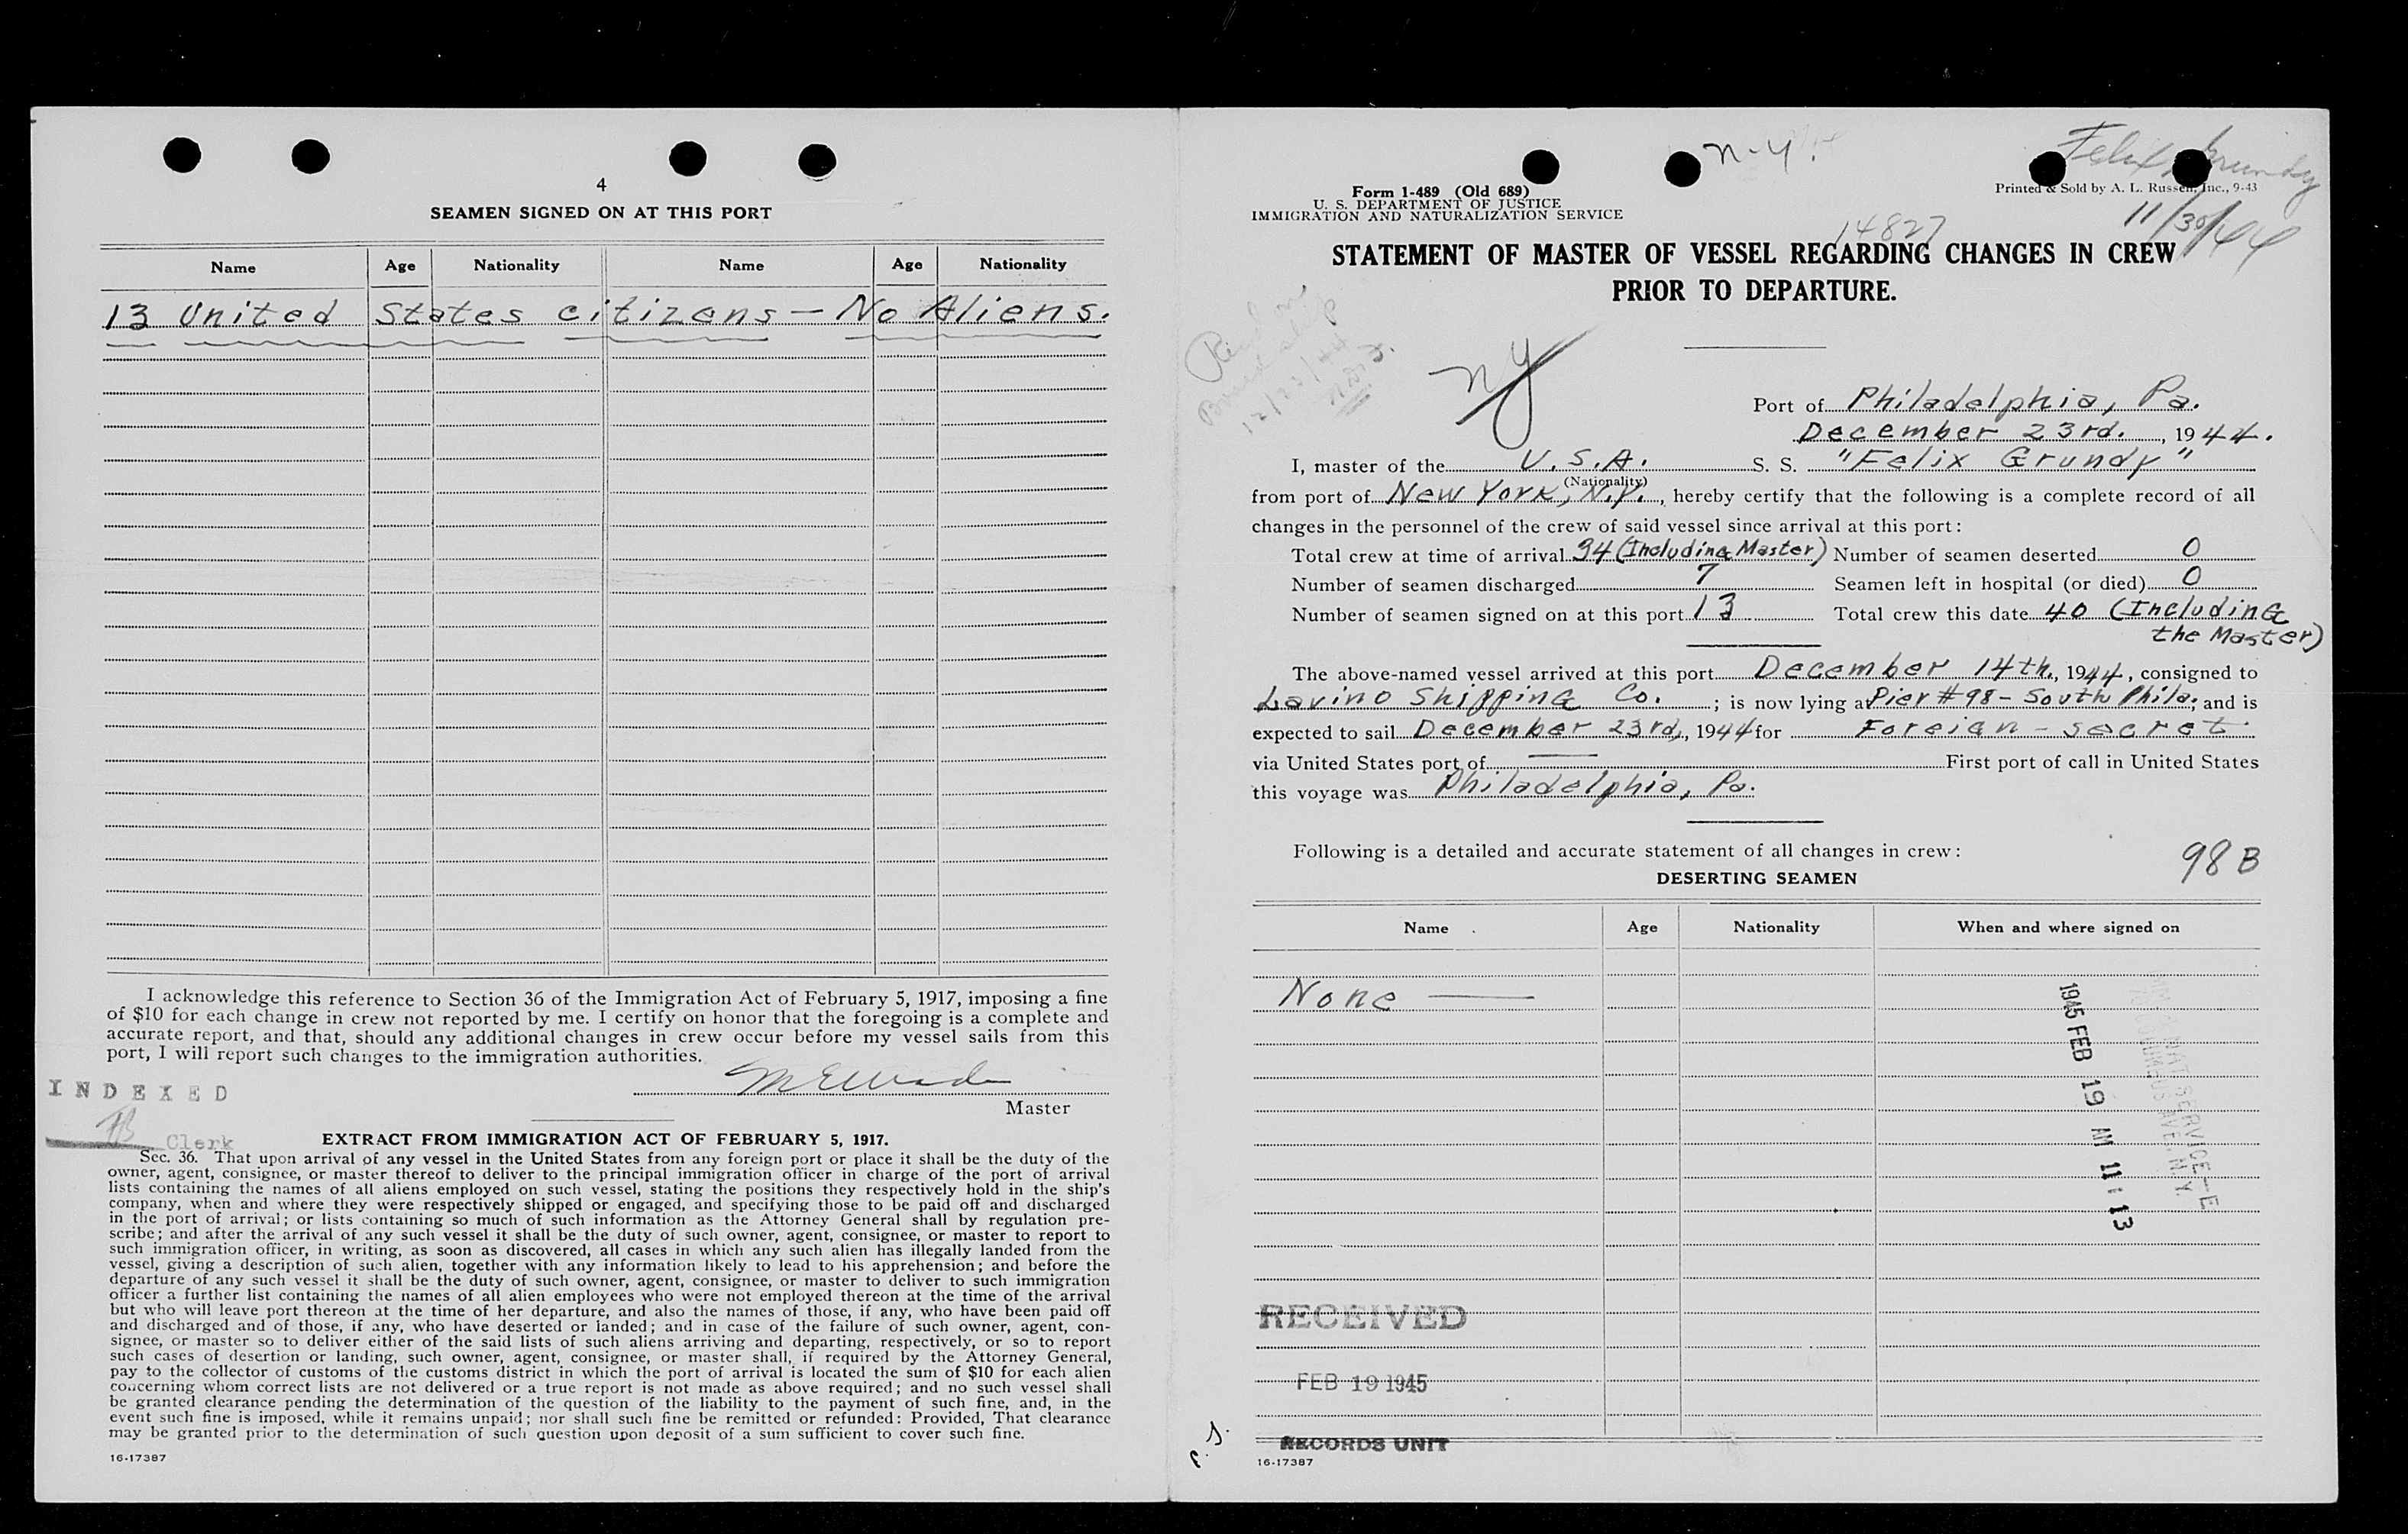 4
SEAMEN SIGNED ON AT THIS PORT
Name Age Nationality Name Age Nationality
13 United States citizens — No Aliens.
I acknowledge this reference to Section 36 of the Immigration Act of February 5, 1917, imposing a fine
of $10 for each change in crew not reported by me. I certify on honor that the foregoing is a complete and
accurate report, and that, should any additional changes in crew occur before my vessel sails from this
port, I will report such changes to the immigration authorities.
INDEXED
Master
Clerk
EXTRACT FROM IMMIGRATION ACT OF FEBRUARY 5, 1917.
Sec. 36. That upon arrival of any vessel in the United States from any foreign port or place it shall be the duty of the
owner, agent, consignee, or master thereof to deliver to the principal immigration officer in charge of the port of arrival
lists containing the names of all aliens employed on such vessel, stating the positions they respectively hold in the ship's
company, when and where they were respectively shipped or engaged, and specifying those to be paid off and discharged
in the port of arrival; or lists containing so much of such information as the Attorney General shall by regulation pre-
scribe; and after the arrival of any such vessel it shall be the duty of such owner, agent, consignee, or master to report to
such immigration officer, in writing, as soon as discovered, all cases in which any such alien has illegally landed from the
vessel, giving a description of such alien, together with any information likely to lead to his apprehension; and before the
departure of any such vessel it shall be the duty of such owner, agent, consignee, or master to deliver to such immigration
officer a further list containing the names of all alien employees who were not employed thereon at the time of the arrival
but who will leave port thereon at the time of her departure, and also the names of those, if any, who have been paid off
and discharged and of those, if any, who have deserted or landed; and in case of the failure of such owner, agent, con-
signee, or master so to deliver either of the said lists of such aliens arriving and departing, respectively, or so to report
such cases of desertion or landing, such owner, agent, consignee, or master shall, if required by the Attorney General,
pay to the collector of customs of the customs district in which the port of arrival is located the sum of $10 for each alien
concerning whom correct lists are not delivered or a true report is not made as above required; and no such vessel shall
be granted clearance pending the determination of the question of the liability to the payment of such fine, and, in the
event such fine is imposed, while it remains unpaid; nor shall such fine be remitted or refunded: Provided, That clearance
may be granted prior to the determination of such question upon deposit of a sum sufficient to cover such fine.
16-17387
N-Y.
Felix Grundy
Form 1-489 (Old 689)
U. S. DEPARTMENT OF JUSTICE
IMMIGRATION AND NATURALIZATION SERVICE
Printed & Sold by A. L. Russell, Inc., 9-43
11/30/44
14827
STATEMENT OF MASTER OF VESSEL REGARDING CHANGES IN CREW
PRIOR TO DEPARTURE.
12/23/44
NY
Port of Philadelphia, Pa.
December 23rd., 1944.
I, master of the U.S.A. S. S. "Felix Grundy"
(Nationality)
from port of New York, N.Y., hereby certify that the following is a complete record of all
changes in the personnel of the crew of said vessel since arrival at this port:
Total crew at time of arrival 34 (Including Master) Number of seamen deserted 0
Number of seamen discharged 7 Seamen left in hospital (or died) 0
Number of seamen signed on at this port 13 Total crew this date 40 (Including
the Master)
The above-named vessel arrived at this port December 14th, 1944, consigned to
Lavino Shipping Co.; is now lying at Pier #98 - South Phila; and is
expected to sail December 23rd, 1944 for Foreign - secret
via United States port of — First port of call in United States
this voyage was Philadelphia, Pa.
Following is a detailed and accurate statement of all changes in crew:
98 B
DESERTING SEAMEN
Name Age Nationality When and where signed on
None —
1945 FEB 19 AM 11:13
RECEIVED
FEB 19 1945
RECORDS UNIT
P.S.
16-17387